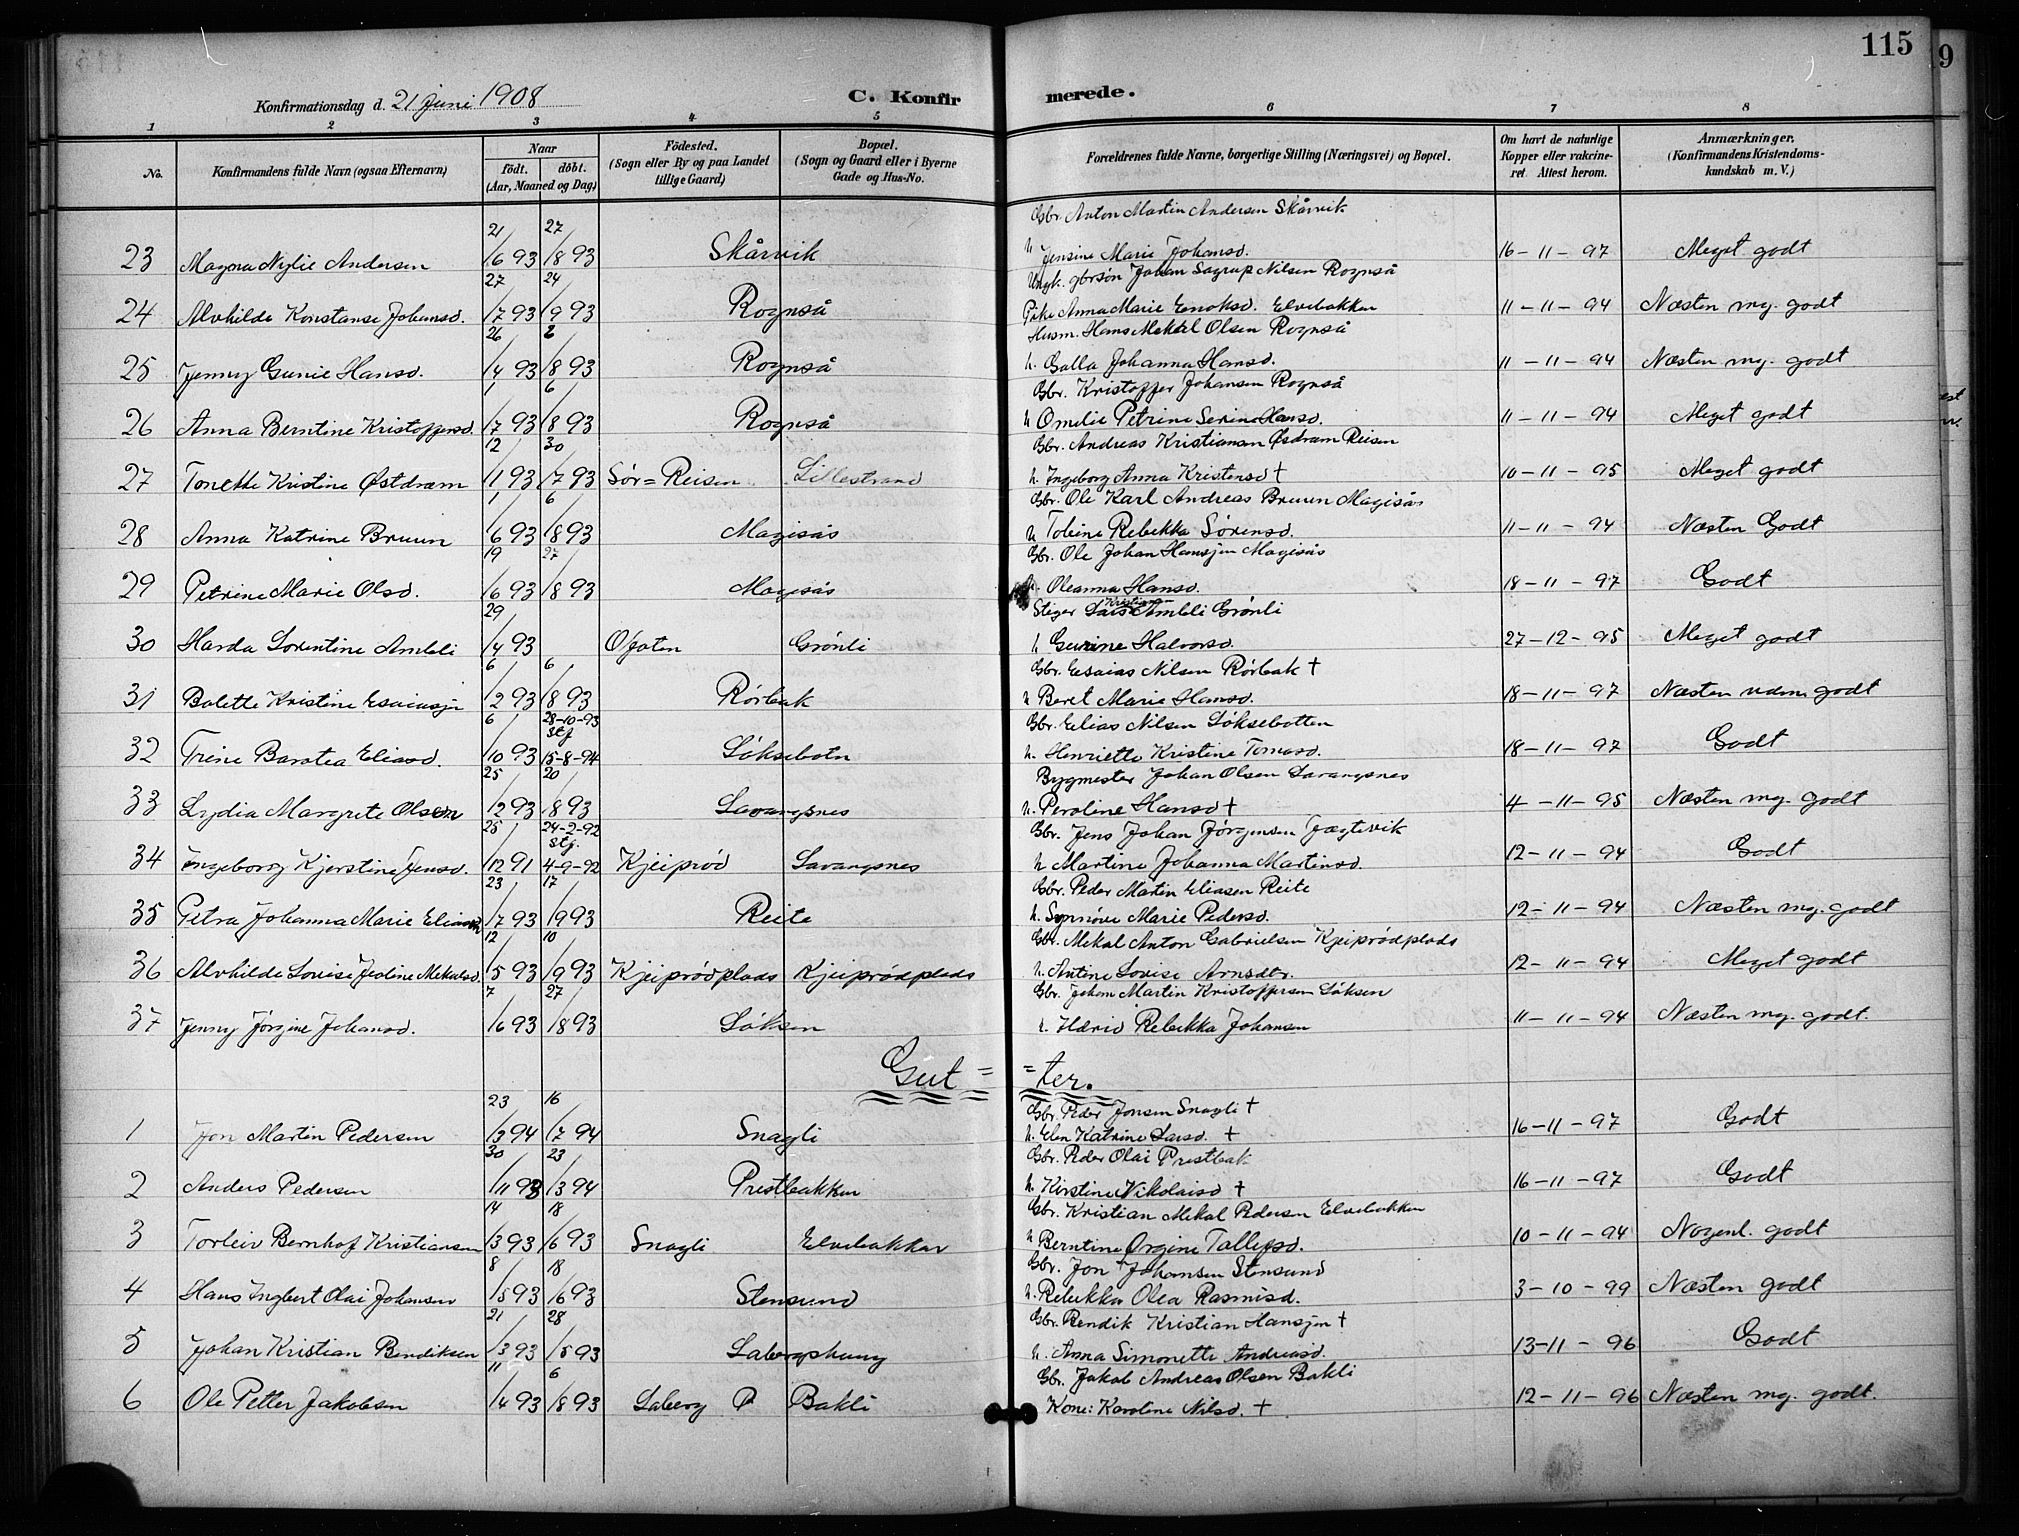 115
Konfirmationsdag d. 21 Juni 1908 C. Konfirmerede.
1 2 3 4 5 6 7 8
No. Konfirmandens fulde Navn (ogsaa Efternavn) Naar født. døbt. (Aar, Maaned og Dag) Födested. (Sogn eller By og paa Landet tillige Gaard) Bopæl. (Sogn og Gaard eller i Byerne Gade og Hus-No. Forældrenes fulde Navne, borgerlige Stilling (Næringsvei) og Bopæl. Om havt de naturlige Kopper eller vakcineret. Attest herom. Anmærkninger. (Konfirmandens Kristendomskundskab m. V.)
Gbr. Anton Martin Andersen Skårvik
23 Magna Nylie Andersen 21/6 93 27/8 93 Skårvik h Jensine Marie Johansd. 16-11-97 Meget godt
Ungk. gbrsøn Johan Sagrup Nilsen Rognså
24 Alvhilde Konstanse Johansd. 27/7 93 24/9 93 Rognså Pike Anna Marie Enoksd. Elvebakken 11-11-94 Næsten mg. godt
Husm. Hans Mekal Olsen Rognså
25 Jenny Gunie Hansd. 26/4 93 2/8 93 Rognså h. Galla Johanna Hansd. 11-11-94 Næsten mg. godt
Gbr. Kristoffer Johansen Rognså
26 Anna Berntine Kristoffersd. 1/7 93 6/8 93 Rognså h Omelie Petrine Serine Hansd. 11-11-94 Meget godt
Gbr. Andreas Kristiansen Østdram Reisen
27 Tonette Kristine Østdram 12/1 93 30/7 93 Sør=Reisen Lillestrand h. Ingeborg Anna Kristensd † 10-11-95 Meget godt
Gbr. Ole Karl Andreas Bruun Magisås
28 Anna Katrine Bruun 1/6 93 6/8 93 Magisås h Tobine Rebekka Sørensd. 11-11-94 Næsten Godt
Gbr. Ole Johan Hansjen Magisås
29 Petrine Marie Olsd. 19/6 93 27/8 93 Magisås Oleanna Hansd. 18-11-97 Godt
Stiger Lars Kristian Amleli Grønli
30 Harda Lorentine Amleli 29/4 93 Ofoten Grønli h Gurine Halvorsd. 27-12-95 Meget godt
Gbr. Esaias Nilsen Rørbak †
31 Bolette Kristine Esaiasjn 6/2 93 6/8 93 Rørbak h Beret Marie Hansd. 18-11-97 Næsten udm. godt
Gbr. Elias Nilsen Løksebotten
32 Trine Barotea Eliasd. 6/10 93 28-10-93 Stf 15-8-94 Løksebotn h. Henriette Kristine Tomasd. 18-11-97 Godt
Bygmester Johan Olsen Lavangsnes
33 Lydia Margrete Olsen 25/12 93 20/8 93 Lavangsnes h. Peroline Hansd † 4-11-95 Næsten mg. godt
Gbr. Jens Johan Jørgensen Jægtevik
34 Ingeborg Kjerstine Jensd. 25/12 91 24-2-92 Stf. 4-9-92 Kjeiprød Lavangsnes h Martine Johanna Martinsd. 12-11-94 Godt
Gbr. Peder Martin Eliasen Reite
35 Petra Johanna Marie Eliasen 23/7 93 17/9 93 Reite h. Synnøve Marie Pedersd. 12-11-94 Næsten mg. godt
Gbr. Mekal Anton Gabrielsen Kjeiprødplads
36 Alvhilde Lovise Jeoline Mekalsd. 12/5 93 10/9 93 Kjeiprødplads Kjeiprødplads h. Antine Lovise Arnsdtr. 12-11-94 Meget godt
Gbr. Johan Martin Kristoffersen Løksen
37 Jenny Jørgine Johansd. 7/6 93 27/8 93 Løksen h. Rebekka Johansen 11-11-94 Næsten mg. godt.
Gut==ter.
Gbr. Peder Jonsen Snagli †
1 Jon Martin Pedersen 23/3 94 16/7 94 Snagli h. Elen Katrine Larsd. † 16-11-97 Godt
Gbr. Peder Olai Prestbak
2 Anders Pedersen 30/11 93 23/3 94 Prestbakken h. Kirstine Nikolaisd † 16-11-97 Godt
Gbr. Kristian Mekal Pedersen Elvebakken
3 Torleiv Bernhof Kristiansen 14/3 93 18/6 93 Snagli Elvebakken h Berntine Ørgine Tallefsd. 10-11-94 Nogenl. godt
Gbr. Jon Johansen Stensund
4 Hans Ingbert Olai Johansen 8/5 93 18/6 93 Stensund h. Rebekka Olea Rasmisd. 3-10-99 Næsten godt
Gbr. Bendik Kristian Hansjen †
5 Johan Kristian Bendiksen 21/3 93 28/5 93 Labergshaug h. Anna Simonette Andreasd. 13-11-96 Godt
Gbr. Jakob Andreas Olsen Bakli
6 Ole Petter Jakobsen 11/4 93 6/8 93 Laberg P Bakli Kone: Karoline Nilsd. † 12-11-96 Næsten mg. godt.